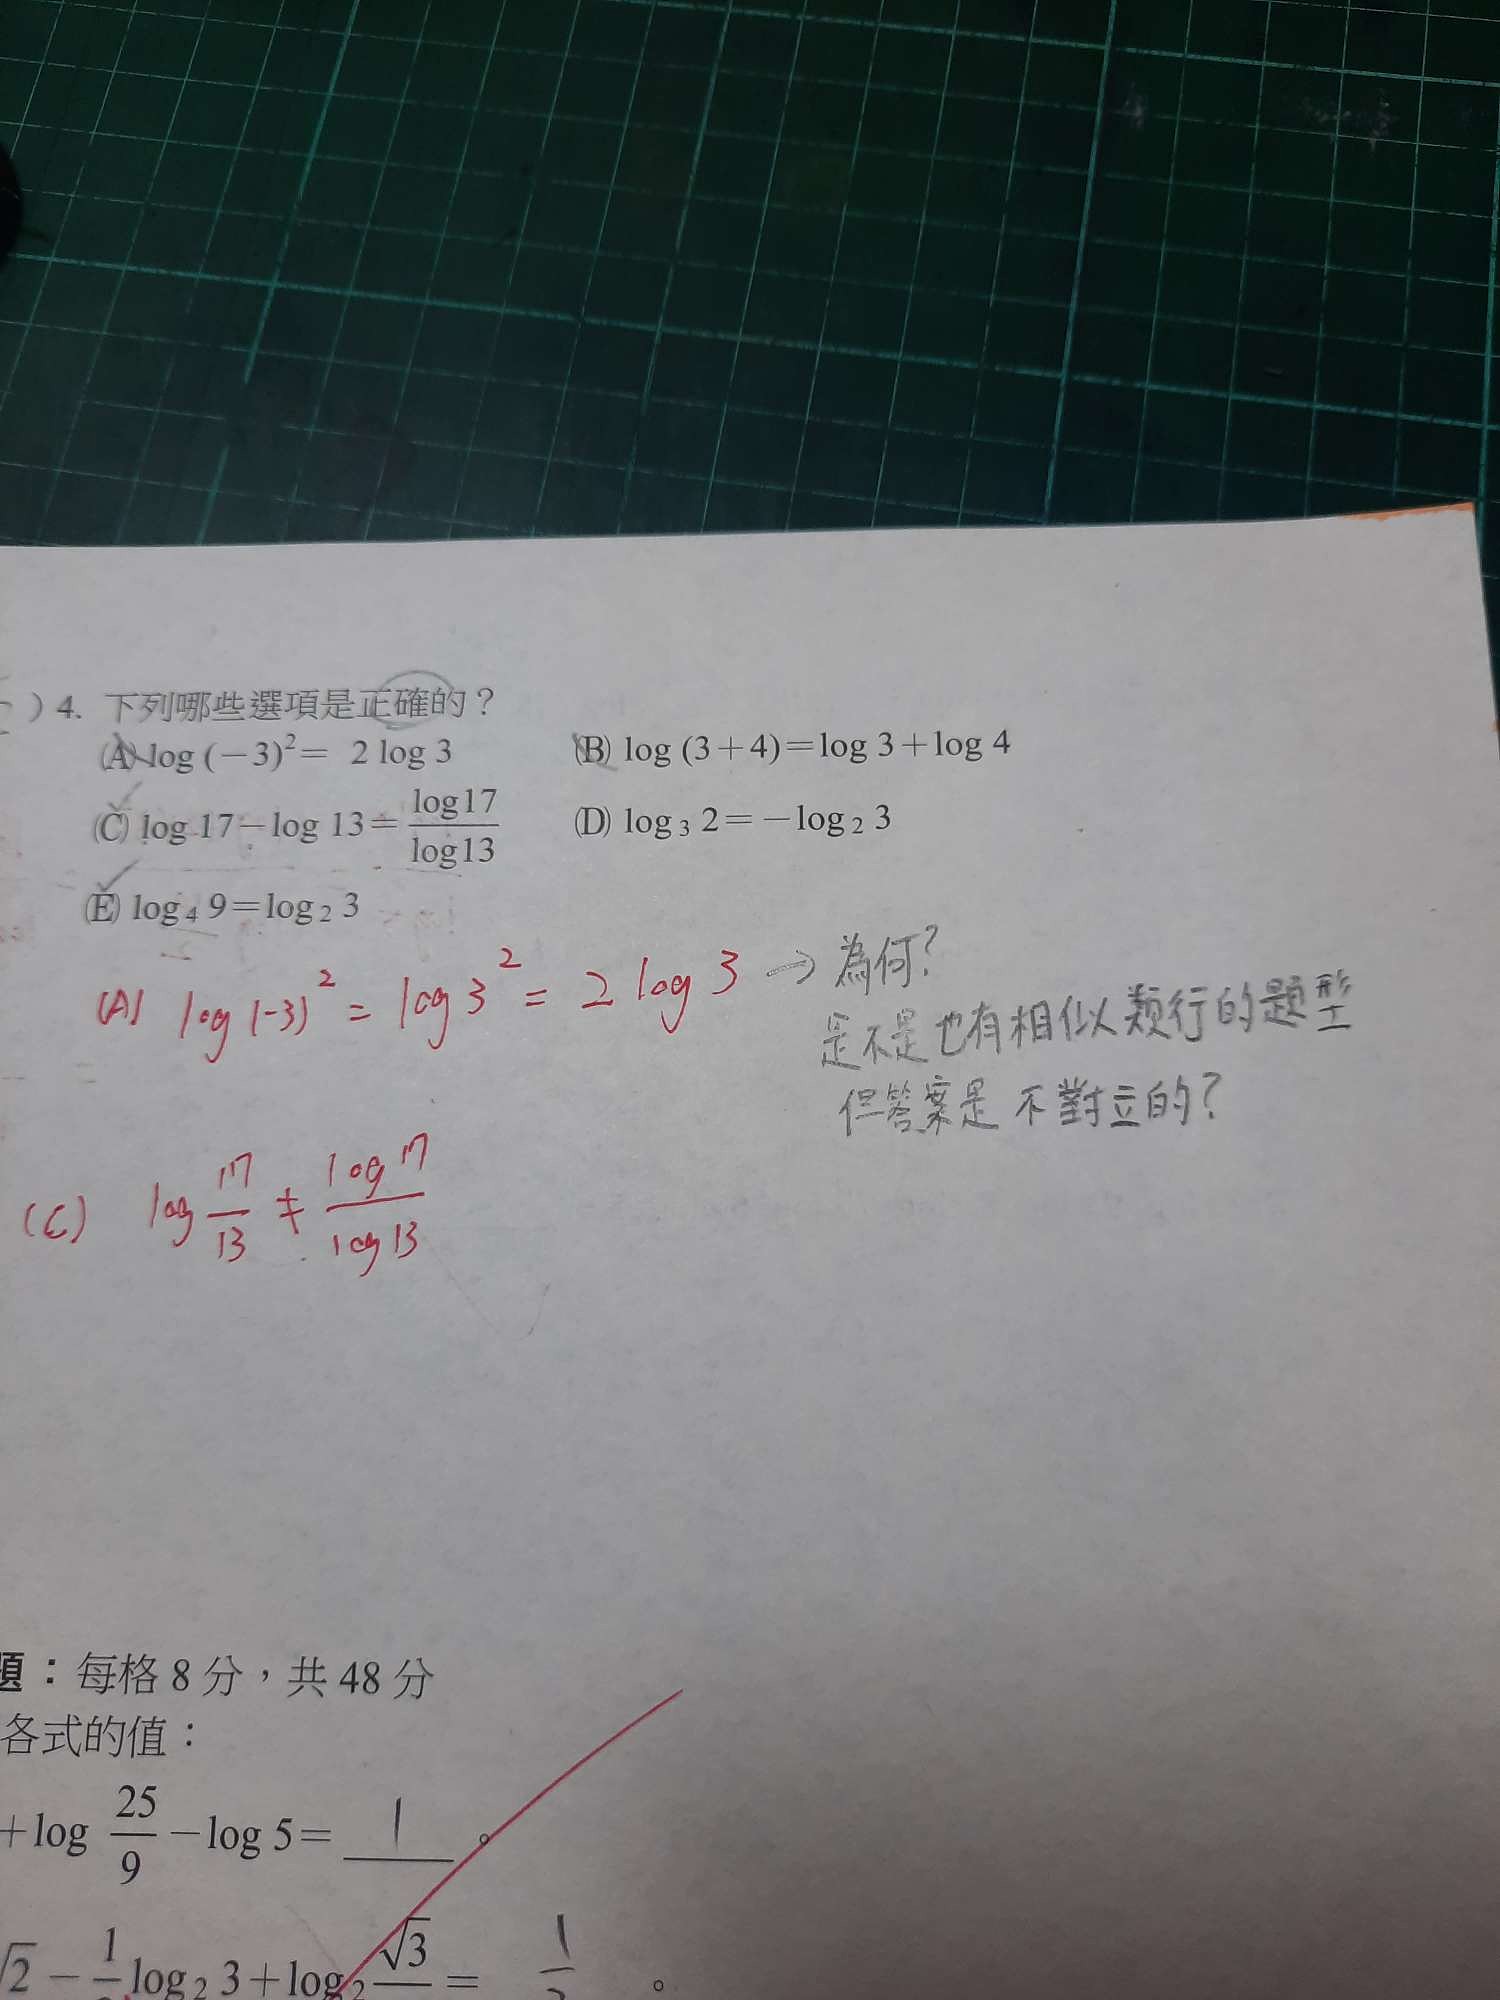 )4. 下列哪些選項是正確的？
(A) log (−3)² = 2 log 3 (B) log (3＋4)＝log 3＋log 4
(C) log 17−log 13＝log17/log13 (D) log₃ 2＝−log₂ 3
(E) log₄ 9＝log₂ 3
(A) log (-3)² = log 3² = 2 log 3 → 為何?
是不是也有相似類行的題型
但答案是不對立的?
(C) log 17/13 ≠ log 17/log 13
題：每格 8 分，共 48 分
各式的值：
＋log 25/9 −log 5＝ 1 。
√2 − 1/ log₂ 3＋log₂ √3/ ＝ 1/ 。